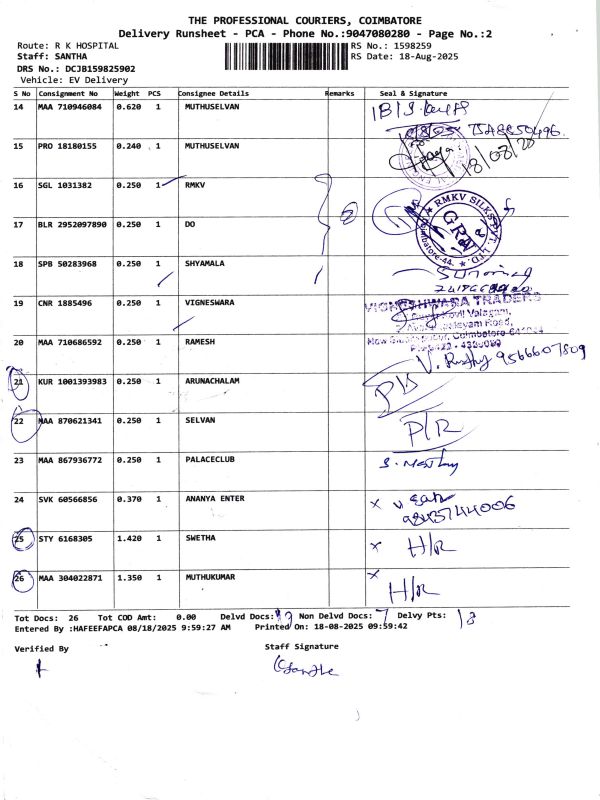 THE PROFESSIONAL COURIERS, COIMBATORE
Delivery Runsheet - PCA - Phone No.:9047080280 - Page No.:2
Route: R K HOSPITAL
RS No.: 1598259
Staff: SANTHA
RS Date: 18-Aug-2025
DRS No.: DCJB159825902
Vehicle: EV Delivery
S No Consignment No Weight PCS Consignee Details Remarks Seal & Signature
14 MAA 710946084 0.620 1 MUTHUSELVAN
15 PRO 18180155 0.240 1 MUTHUSELVAN
18/08/20
16 SGL 1031382 0.250 1 RMKV
★ RMKV SILKS PVT. LTD. ★ Coimbatore-44.
GRN
17 BLR 2952097890 0.250 1 DO
18 SPB 50283968 0.250 1 SHYAMALA
19 CNR 1885496 0.250 1 VIGNESWARA
VIGNESHWARA TRADERS
20 MAA 710686592 0.250 1 RAMESH
9566607809
21 KUR 1001393983 0.250 1 ARUNACHALAM
22 MAA 870621341 0.250 1 SELVAN P/R
23 MAA 867936772 0.250 1 PALACECLUB
24 SVK 60566856 0.370 1 ANANYA ENTER x
9843744006
25 STY 6168305 1.420 1 SWETHA x H/R
26 MAA 304022871 1.350 1 MUTHUKUMAR x H/R
Tot Docs: 26 Tot COD Amt: 0.00 Delvd Docs: Non Delvd Docs: 7 Delvy Pts: 18
Entered By :HAFEEFAPCA 08/18/2025 9:59:27 AM Printed On: 18-08-2025 09:59:42
Verified By
Staff Signature